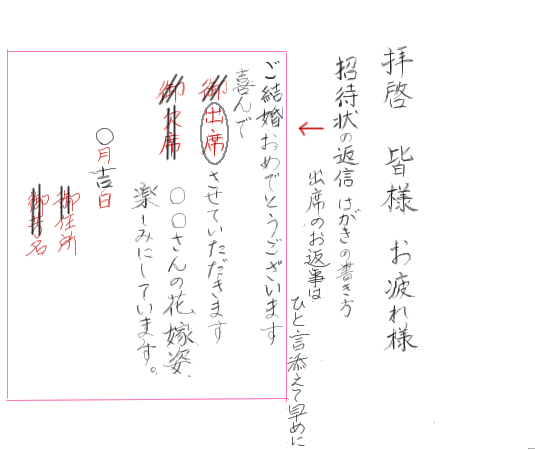 拝啓 皆様 お疲れ様
招待状の返信はがきの書き方
出席のお返事は
ひと言添えて早めに
←
ご結婚おめでとうございます
喜んで
御出席させていただきます
御欠席
○○さんの花嫁姿
楽しみにしています。
○月吉日
御住所
御芳名